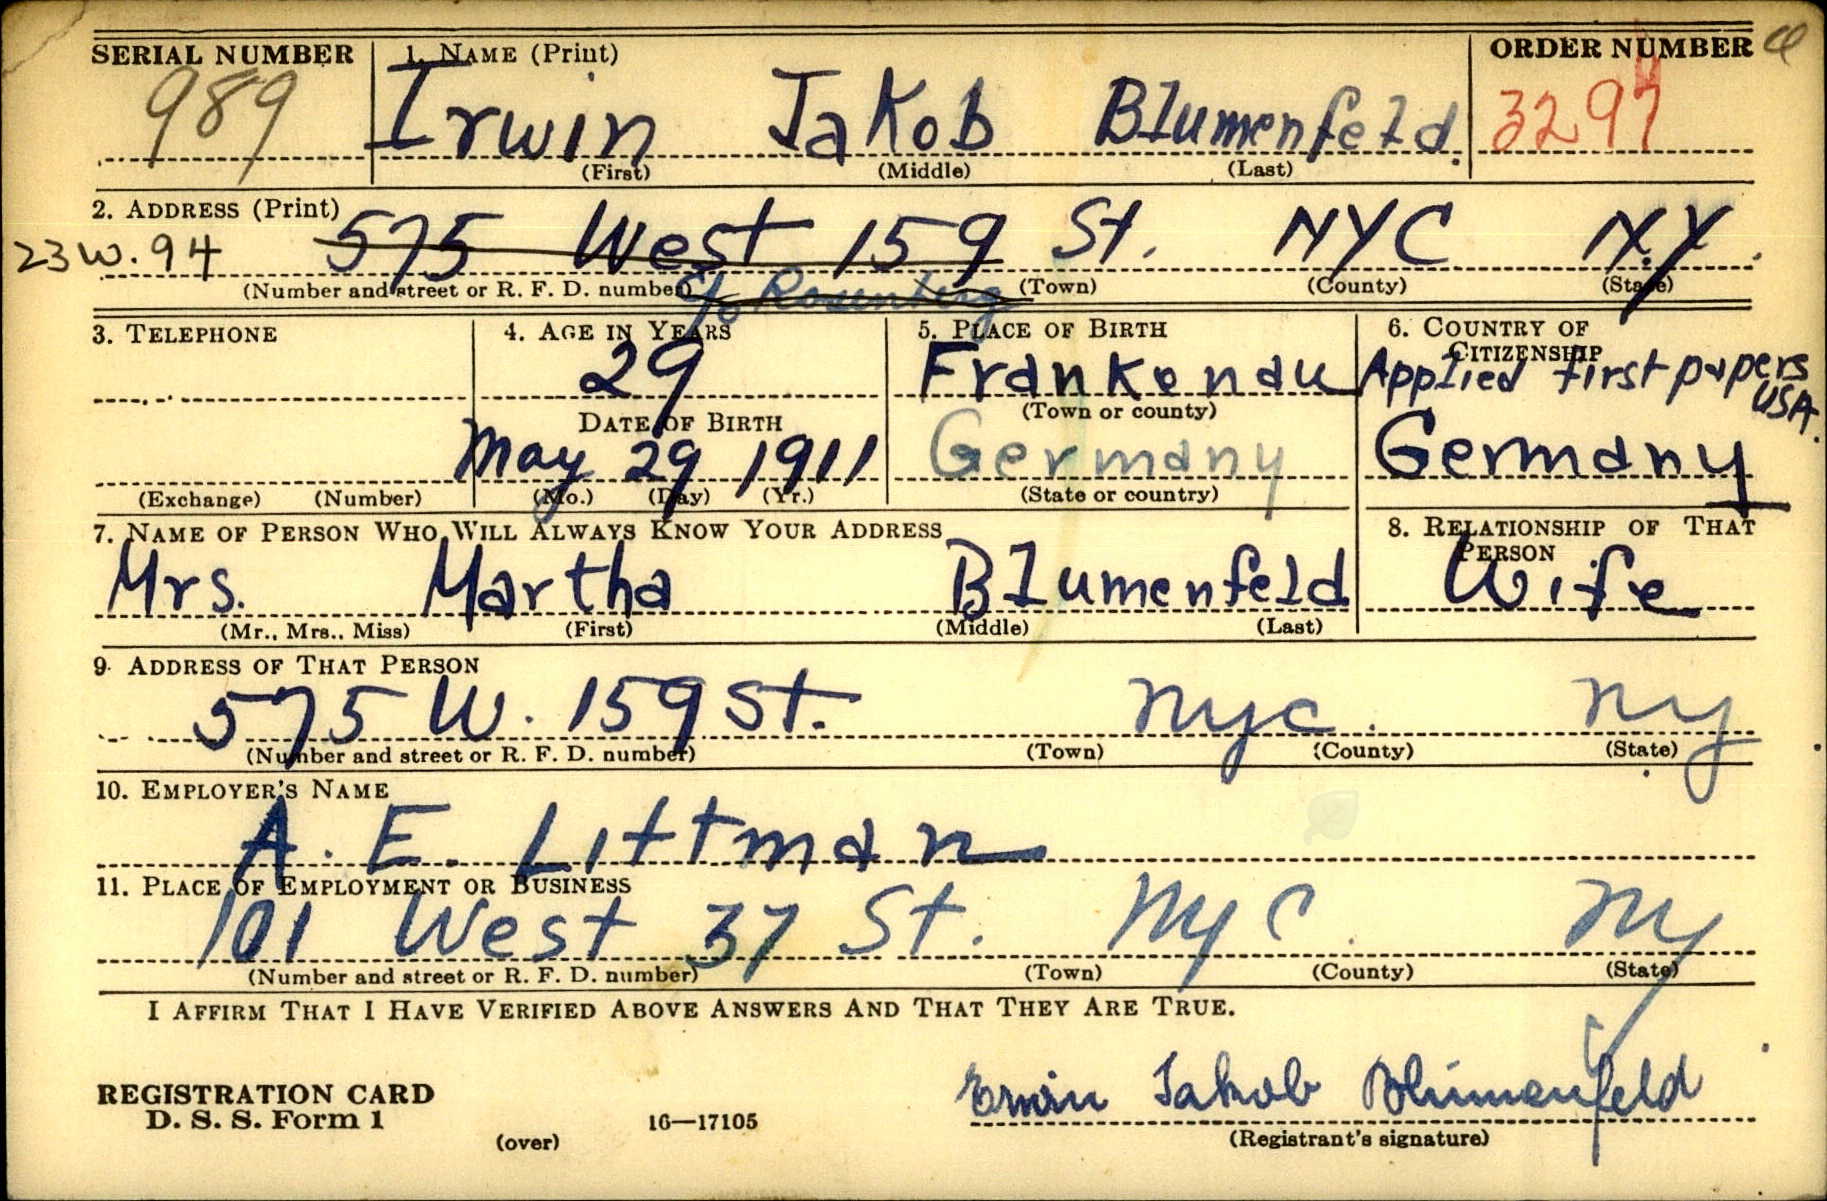 SERIAL NUMBER 1. NAME (Print) ORDER NUMBER
989 Irwin Jakob Blumenfeld. 3297
(First) (Middle) (Last)
2. ADDRESS (Print)
23 W. 94 575 West 159 St. NYC N.Y.
(Number and street or R. F. D. number) (Town) (County) (State)
c/o Rosenberg
3. TELEPHONE 4. AGE IN YEARS 5. PLACE OF BIRTH 6. COUNTRY OF CITIZENSHIP
29 Frankenau Applied first papers USA.
DATE OF BIRTH (Town or county)
May 29 1911 Germany Germany
(Exchange) (Number) (Mo.) (Day) (Yr.) (State or country)
7. NAME OF PERSON WHO WILL ALWAYS KNOW YOUR ADDRESS 8. RELATIONSHIP OF THAT PERSON
Mrs. Martha Blumenfeld Wife
(Mr., Mrs., Miss) (First) (Middle) (Last)
9. ADDRESS OF THAT PERSON
575 W. 159 St. nyc. ny
(Number and street or R. F. D. number) (Town) (County) (State)
10. EMPLOYER'S NAME
A. E. Littman
11. PLACE OF EMPLOYMENT OR BUSINESS
101 West 37 St. NyC. Ny
(Number and street or R. F. D. number) (Town) (County) (State)
I AFFIRM THAT I HAVE VERIFIED ABOVE ANSWERS AND THAT THEY ARE TRUE.
REGISTRATION CARD
D. S. S. Form 1 16—17105 Erwin Jakob Blumenfeld
(over) (Registrant's signature)